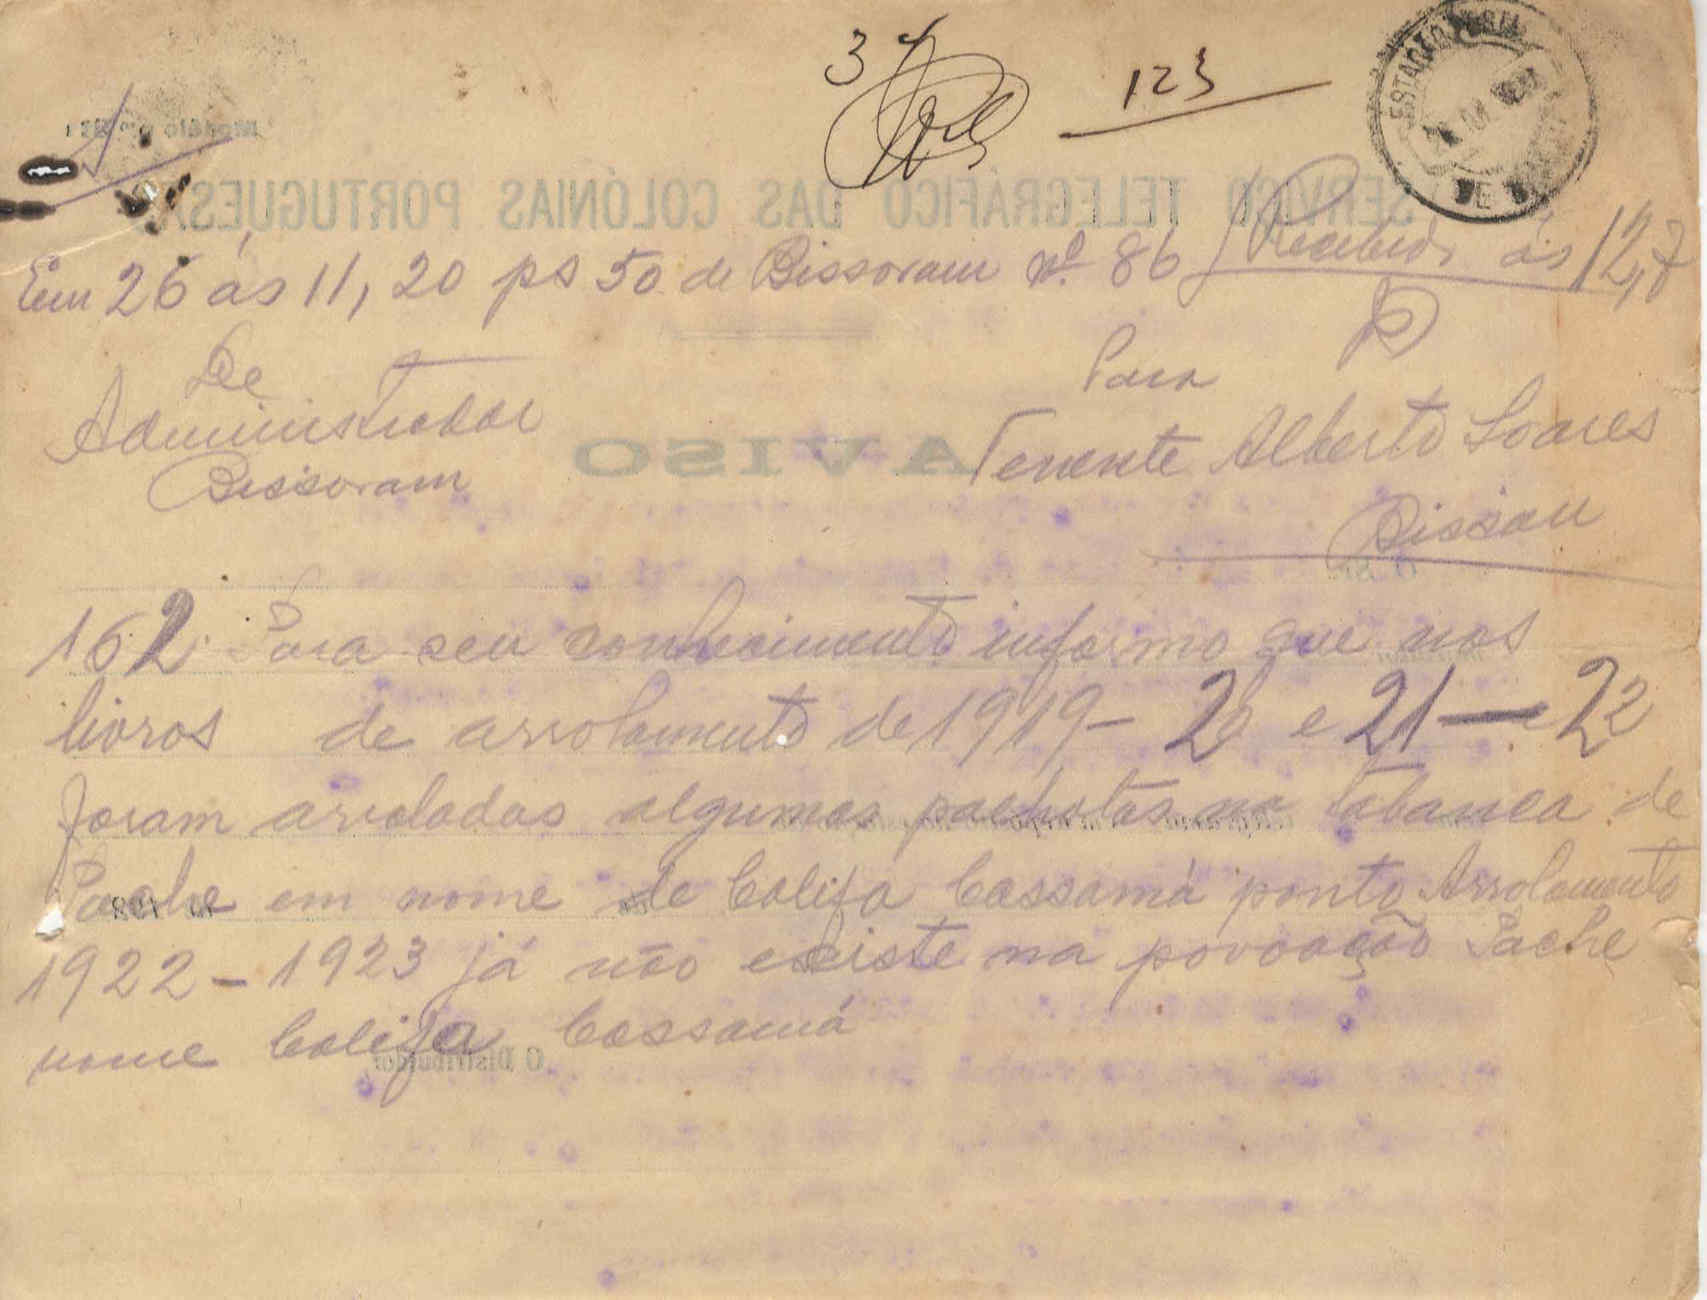 37
123
ESTAÇÃO
DE
Em 26 ás 11,20 ps 50 de Bissoram nº 86 Recebido ás 12,7
De
Para
Administrador
Tenente Alberto Soares
Bissoram
Bissau
162 Para seu conhecimento informo que nos
livros de arrolamento de 1919-20 e 21-22
foram arroladas algumas palhotas na tabanca de
Pache em nome de Califa Cassamá ponto Arrolamento
1922-1923 já não existe na povoação Pache
nome Califa Cassamá
SERVIÇO TELEGRÁFICO DAS COLÓNIAS PORTUGUESAS
AVISO
O Distribuidor